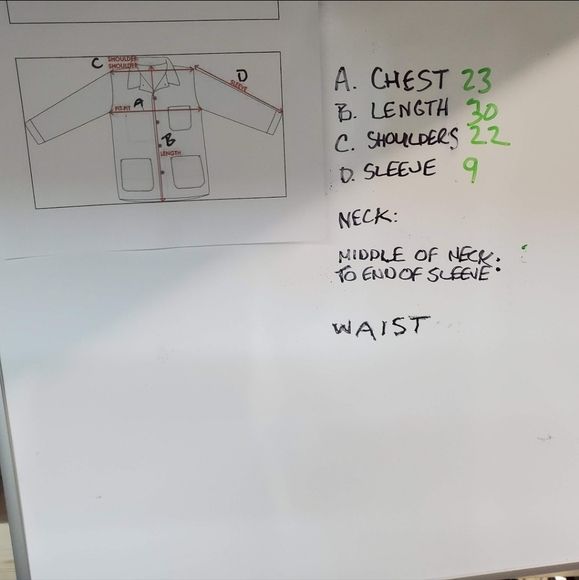 SHOULDER
SHOULDER
C
D
SLEEVE
A
PIT-PIT
B
LENGTH
A. CHEST 23
B. LENGTH 30
C. SHOULDERS 22
D. SLEEVE 9
NECK:
MIDDLE OF NECK
TO END OF SLEEVE:
WAIST